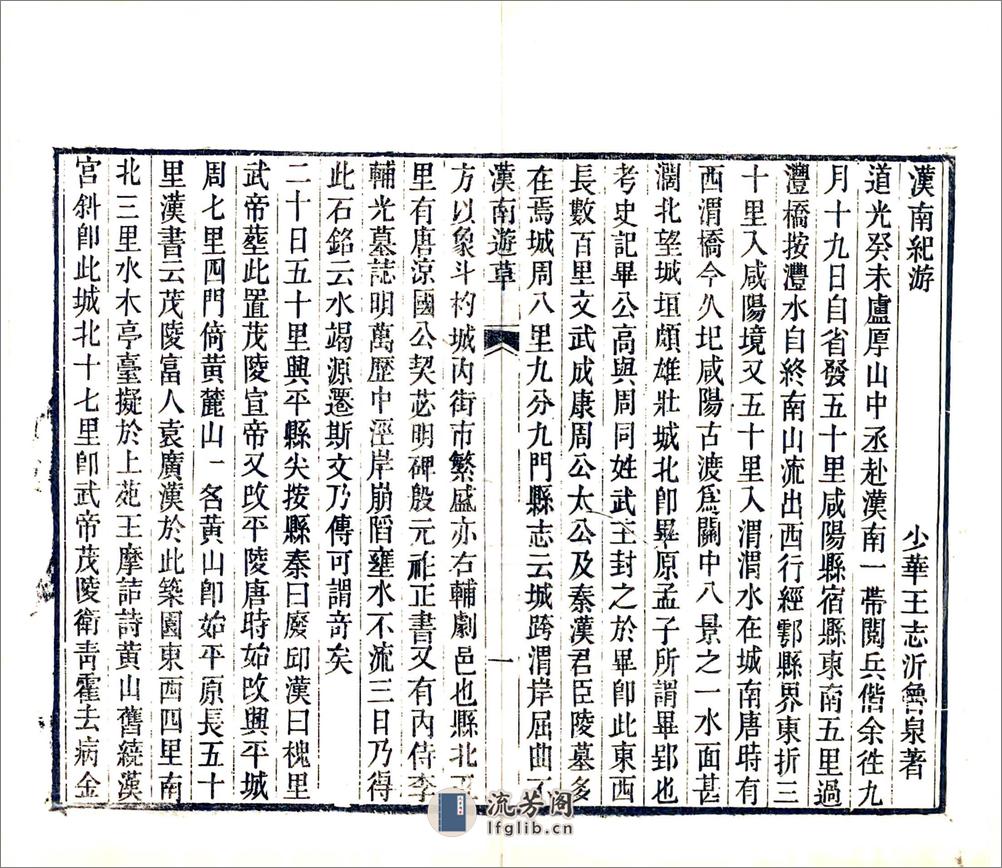 漢南紀游
少華王志沂魯泉著
道光癸未盧厚山中丞赴漢南一帶閱兵偕余徃九
月十九日自省發五十里咸陽縣宿縣東南五里過
灃橋按灃水自終南山流出西行經鄠縣界東折三
十里入咸陽境又五十里入渭渭水在城南唐時有
西渭橋今久圮咸陽古渡為關中八景之一水面甚
濶北望城垣頗雄壯城北卽畢原孟子所謂畢郢也
考史記畢公高與周同姓武王封之於畢卽此東西
長數百里文武成康周公太公及秦漢君臣陵墓多
在焉城周八里九分九門縣志云城跨渭岸屈曲不
漢南遊草
一
方以象斗杓城內街市繁盛亦右輔劇邑也縣北五
里有唐涼國公契苾明碑殷元祚正書又有內侍李
輔光墓誌明萬歷中涇岸崩䧟壅水不流三日乃得
此石銘云水竭源遷斯文乃傳可謂竒矣
二十日五十里興平縣尖按縣秦曰廢邱漢曰槐里
武帝塟此置茂陵宣帝又改平陵唐時始改興平城
周七里四門倚黃麓山一名黃山卽始平原長五十
里漢書云茂陵富人袁廣漢於此築園東西四里南
北三里水木亭臺擬於上苑王摩詰詩黃山舊繞漢
宮斜卽此城北十七里卽武帝茂陵衛靑霍去病金
流芳阁
lfglib.cn